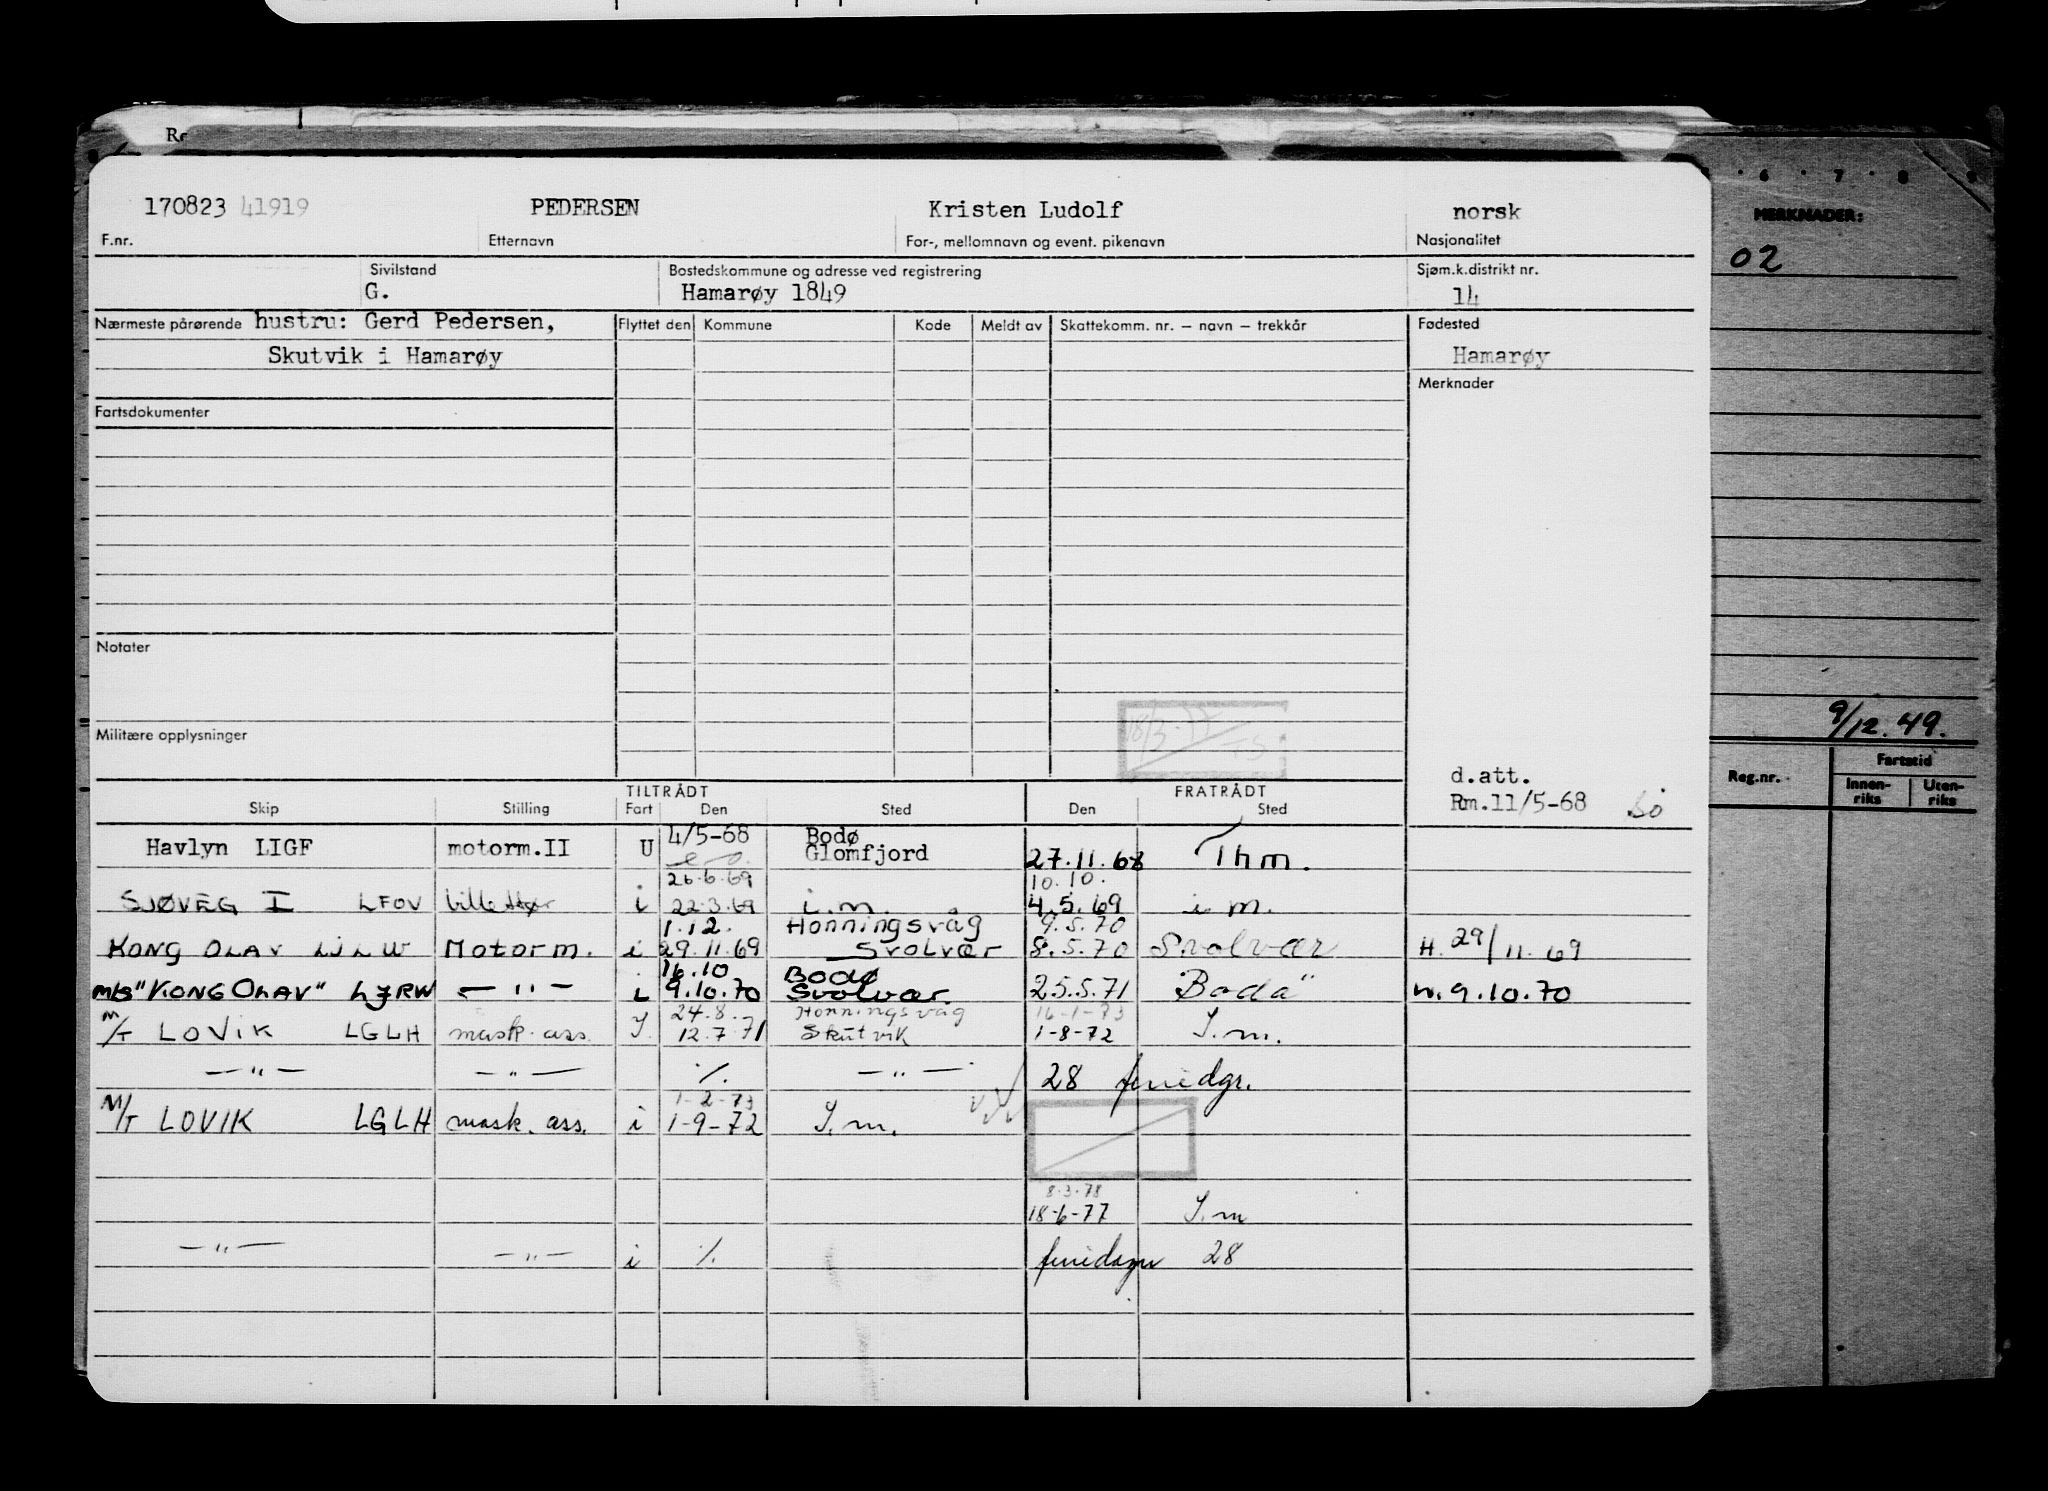 Re
170823 41919 PEDERSEN Kristen Ludolf norsk
F.nr. Etternavn For-, mellomnavn og event. pikenavn Nasjonalitet
Sivilstand Bostedskommune og adresse ved registrering Sjøm.k.distrikt nr.
G. Hamarøy 1849 14
Nærmeste pårørende hustru: Gerd Pedersen, Flyttet den Kommune Kode Meldt av Skattekomm. nr. – navn – trekkår Fødested
Skutvik i Hamarøy Hamarøy
Merknader
Fartsdokumenter
Notater
18/3-77
Militære opplysninger
d.att.
Rm.11/5-68
TILTRÅDT FRATRÅDT
Skip Stilling Fart Den Sted Den Sted
4/5-68 Bodø
Havlyn LIGF motorm.II U Glomfjord 27.11.68 Thm.
26.6.69 10.10.
SJØVEG I LFOV billettør i 22.3.69 i.m. 4.5.69 i m.
1.12. Honningsvåg 9.5.70
KONG OLAV LJLW Motorm. i 29.11.69 Svolvær 8.5.70 Svolvær H. 29/11.69
16.10 Bodø
M/S "KONG OLAV" LJRW — " — i 9.10.70 Svolvær. 25.5.71 Bodø 9.10.70
24.8. Honningsvåg 16-1-73
M/T LOVIK LGLH mask.ass. I. 12.7.71 Skutvik 1-8-72 I.m.
— " — — " — ·/. — " — 28 feriedgr.
1-2-73
M/T LOVIK LGLH mask. ass. i 1-9-72 I.m.
8.3.78
18-6-77 I.m
— " — — " — i ·/. feriedager 28
6 7 8 9
MERKNADER:
02
9/12.49.
Reg.nr. Fartstid
Innen-riks Uten-riks